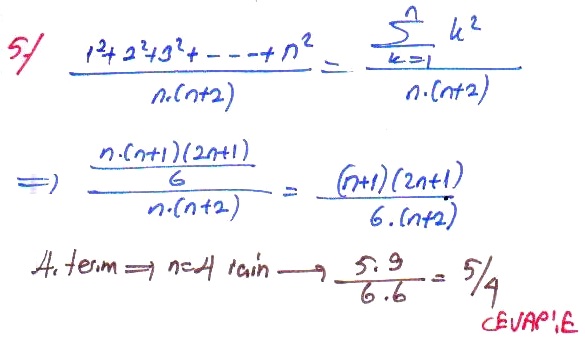 5-) (1²+2²+3²+----+n²)/(n.(n+2)) = (∑_{k=1}^{n} k²)/(n.(n+2))
=> (n.(n+1)(2n+1)/6)/(n.(n+2)) = ((n+1)(2n+1))/(6.(n+2))
4. terim => n=4 için → (5.9)/(6.6) = 5/4
CEVAP: E